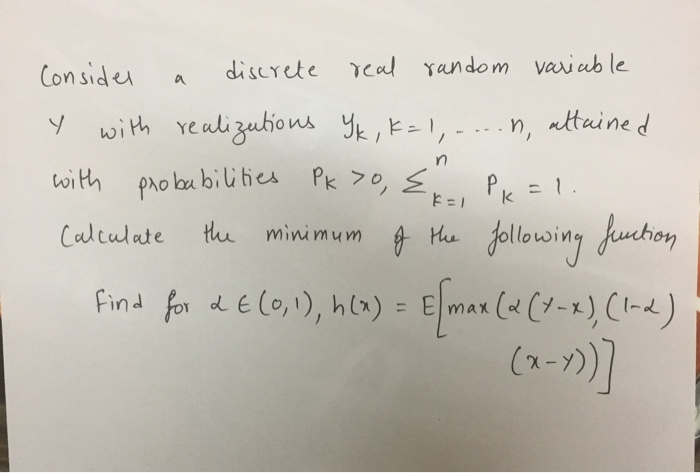 Consider a discrete real random variable
Y with realizations yₖ, k=1, - .... n, attained
with probabilities Pₖ >0, Σⁿₖ₌₁ Pₖ = 1.
Calculate the minimum of the following function
Find for α ∈ (0,1), h(x) = E[max(α(Y-x), (1-α)
(x-Y))]